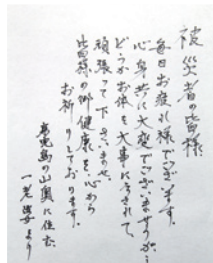 被災者の皆様
毎日お疲れ様でございます。
心身共に大変でございますが…
どうかお体を大事になされて、
頑張って下さいませ。
皆様の御健康を、心から
お祈りしております。
鹿児島の山奥に住む
一老婆より